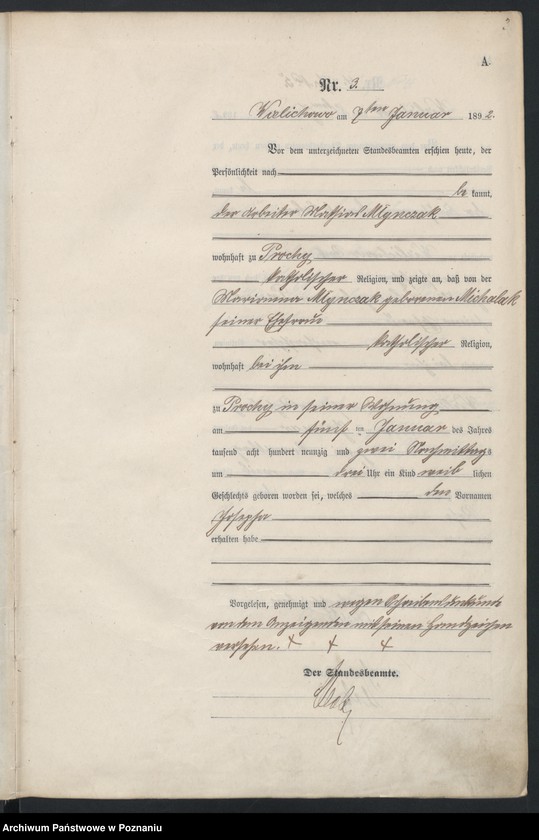 A
Nr. 3.
Wielichowo am 7ten Januar 1892.
Vor dem unterzeichneten Standesbeamten erschien heute, der
Persönlichkeit nach
be kannt,
der Arbeiter Mathias Młynczak
wohnhaft zu Prochy
katholischer Religion, und zeigte an, daß von der
Marianna Młynczak geborenen Michalak
seiner Ehefrau
katholischer Religion,
wohnhaft bei ihm
zu Prochy in seiner Wohnung
am fünf ten Januar des Jahres
tausend acht hundert neunzig und zwei Nachmittags
um drei Uhr ein Kind weib lichen
Geschlechts geboren worden sei, welches den Vornamen
Josepha
erhalten habe
Vorgelesen, genehmigt und wegen Schreibensunkunde
von dem Anzeigenden mit seinem Handzeichen
versehen. + + +
Der Standesbeamte.
Archiwum Państwowe w Poznaniu